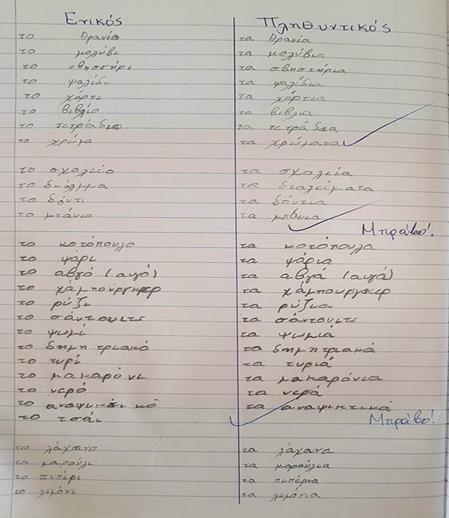 Ενικός Πληθυντικός
το θρανίο τα θρανία
το μολύβι τα μολύβια
το σβηστήρι τα σβηστήρια
το ψαλίδι τα ψαλίδια
το χάρτι τα χάρτια
το βιβλίο τα βιβλία
το τετράδιο τα τετράδια
το χρώμα τα χρώματα
το σχολείο τα σχολεία
το διάλημμα τα διαλείματα
το δόντι τα δόντια
το μπάνιο τα
Μπράβο!
το κοτόπουλο τα κοτόπουλα
το ψάρι τα ψάρια
το αβγό (αυγό) τα αβγά (αυγά)
το χάμπουργκερ τα χάμπουργκερ
το ρύζι τα ρύζια
το σάντουιτς τα σάντουιτς
το ψωμί τα ψωμιά
το δημητριακό τα δημητριακά
το τυρί τα τυριά
το μακαρόνι τα μακαρόνια
το νερό τα νερά
το αναψυκτικό τα αναψυκτικά
το τσάι
Μπράβο!
το λάχανο τα λάχανα
το μαρούλι τα μαρούλια
το πιπέρι τα πιπέρια
το λεμόνι τα λεμόνια